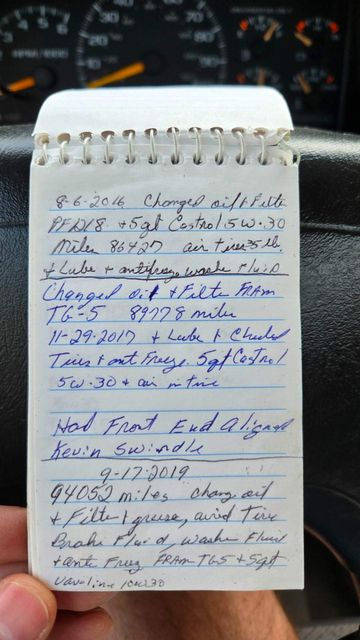 8-6-2016 Changed oil + Filter
PF1218 +5qt Castrol 5W-30
Miles 86427 air Tires 35 lb.
+ Lube + antifreeze washer Fluid
Changed oil + Filter FRAM
TG-5 89778 miles
11-29-2017 + Lube + Checked
Tires + ant Freeze. 5qt Castrol
5w-30 + air in tire
Had Front End Aligned
Kevin Swindle
9-17-2019
94052 miles change oil
+ Filter + grease, aired Tire
Brake Fluid, washer Fluid
+ ante Freez FRAM TG5 + 5qt
Valvoline 10W30
RPM/1000